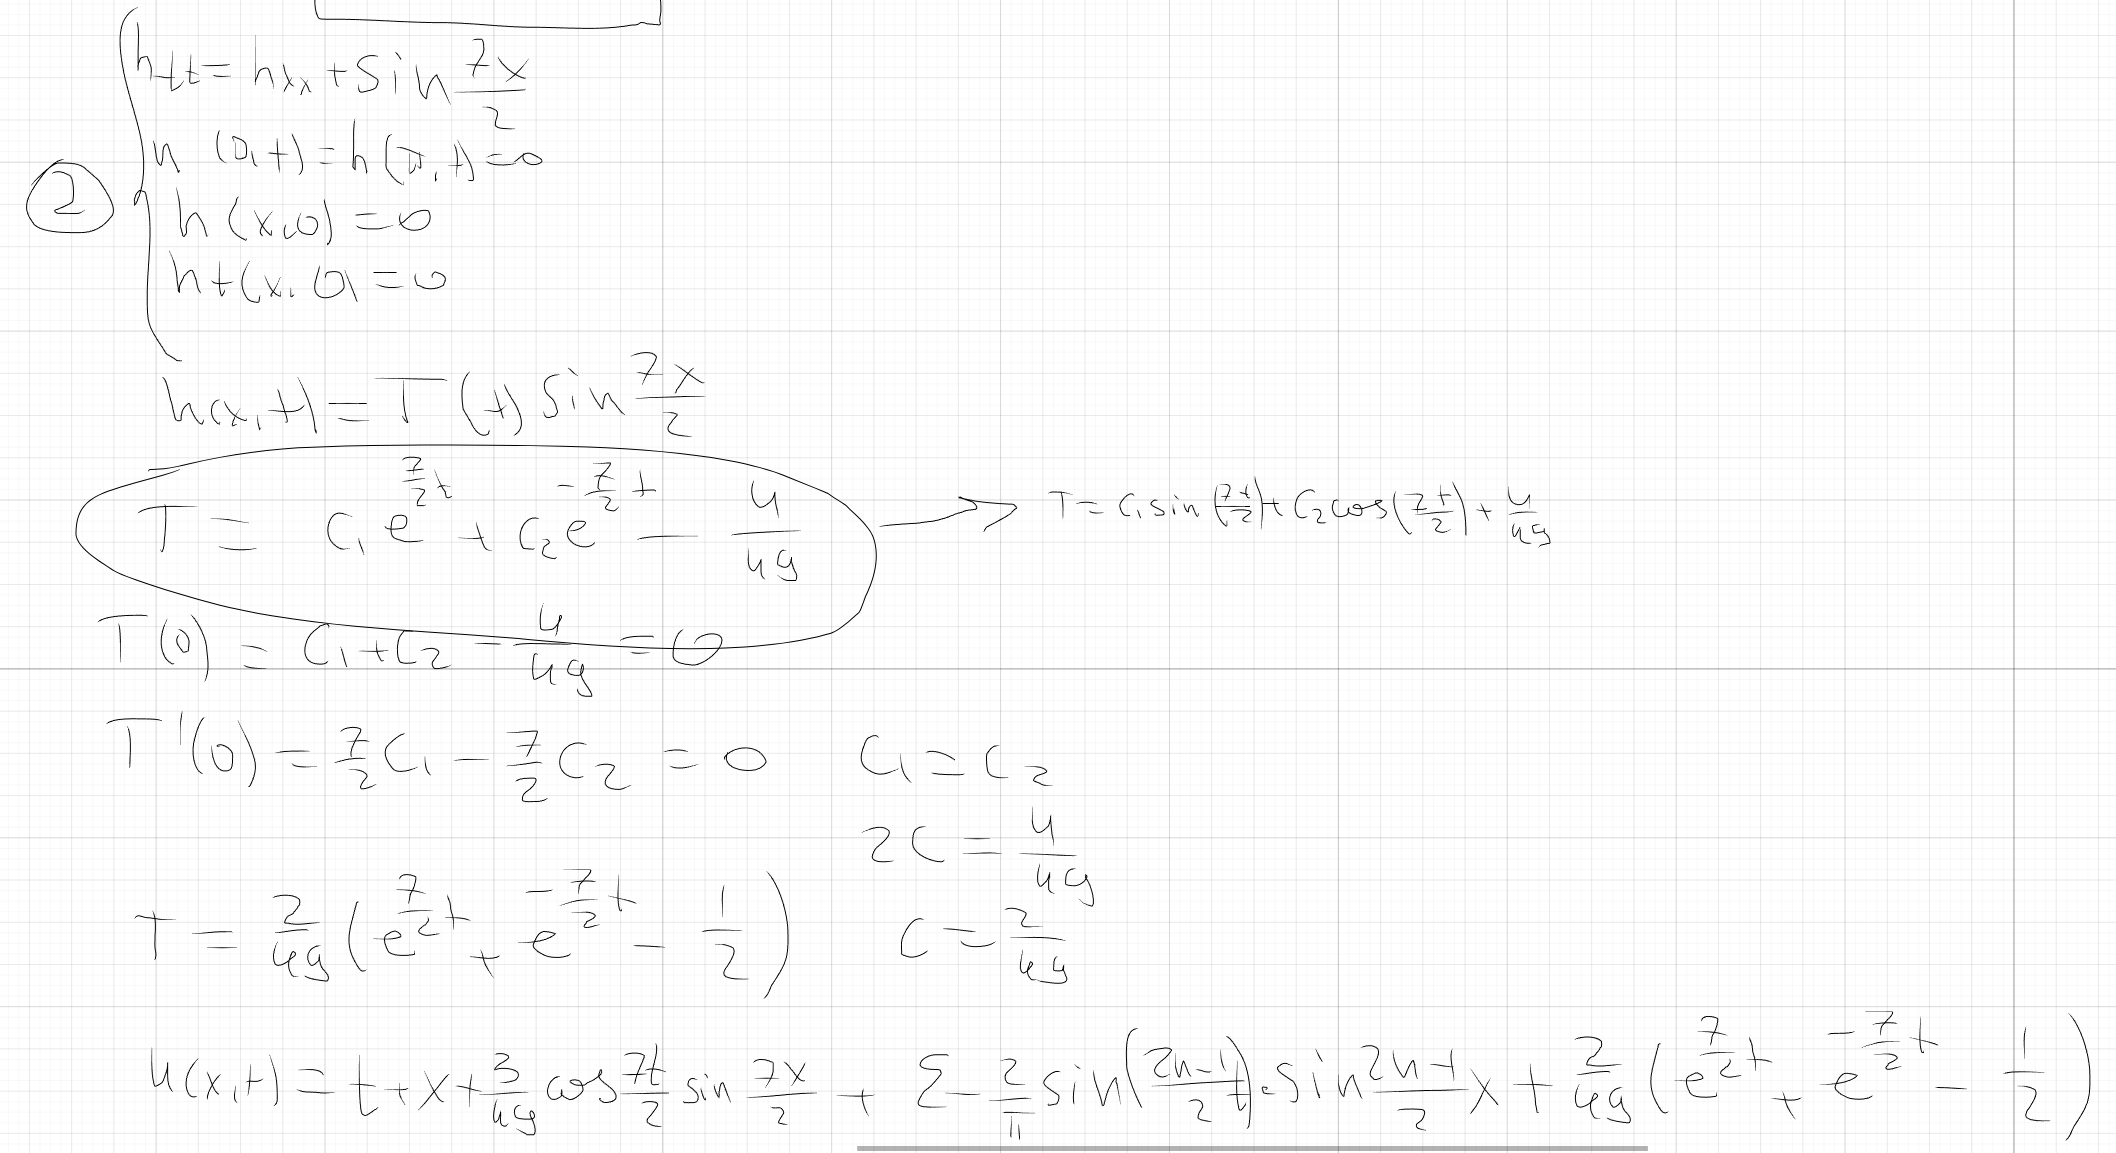 h_tt = h_xx + sin 7x/2
② h(0,t) = h(π,t) = 0
h(x,0) = 0
h_t(x,0) = 0
h(x,t) = T(t) sin 7x/2
T = C₁e^(7/2 t) + C₂e^(-7/2 t) - 4/49 → T = C₁ sin(7t/2) + C₂ cos(7t/2) + 4/49
T(0) = C₁ + C₂ - 4/49 = 0
T'(0) = 7/2 C₁ - 7/2 C₂ = 0 C₁ = C₂
2C = 4/49
T = 2/49 (e^(7/2 t) + e^(-7/2 t) - 1/2) C = 2/49
u(x,t) = t + x + 3/49 cos 7t/2 sin 7x/2 + Σ - 2/π sin((2n-1)/2 t) · sin (2n-1)/2 x + 2/49 (e^(7/2 t) + e^(-7/2 t) - 1/2)